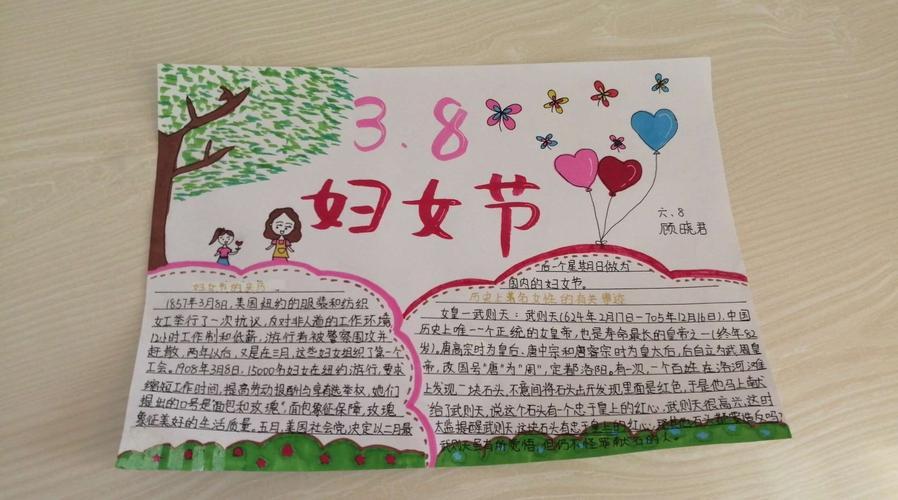 3.8
妇女节
六、8
顾晓君
妇女节的来历
1857年3月8日,美国纽约的服装和纺织
女工举行了一次抗议,反对非人道的工作环境,
12小时工作制和低薪,游行者被警察围攻并
赶散,两年以后,又是在三月,这些妇女组织了第一个
工会。1908年3月8日,15000名妇女在纽约游行,要求
缩短工作时间,提高劳动报酬与享有选举权,她们
提出的口号是"面包和玫瑰",面包象征保障,玫瑰
象征美好的生活质量。五月,美国社会党决定以二月最
后一个星期日做为
国内的妇女节。
历史上著名女性的有关事迹
女皇一武则天:武则天(624年2月17日一705年12月16日),中国
历史上唯一一个正统的女皇帝,也是寿命最长的皇帝之一(终年82
岁),唐高宗时为皇后、唐中宗和唐睿宗时为皇太后,后自立为武周皇
帝,改国号"唐"为"周",定都洛阳。有一次,一个百姓在洛河滩
上发现一块石头,不意间将石头击开发现里面是红色,于是他马上献
给了武则天,说这个石头有一个忠于皇上的红心,武则天很高兴,这时
大臣提醒武则天,这块石头有忠于皇上的红心,
武则天虽有所觉悟,但仍不怪罪献石的人。